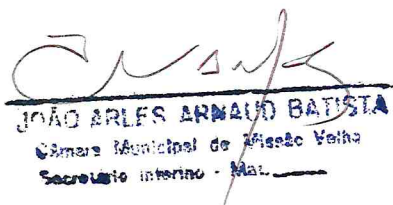 JOÃO ARLES ARNAUD BATISTA
Câmara Municipal de Missão Velha
Secretário Interino - Mat.